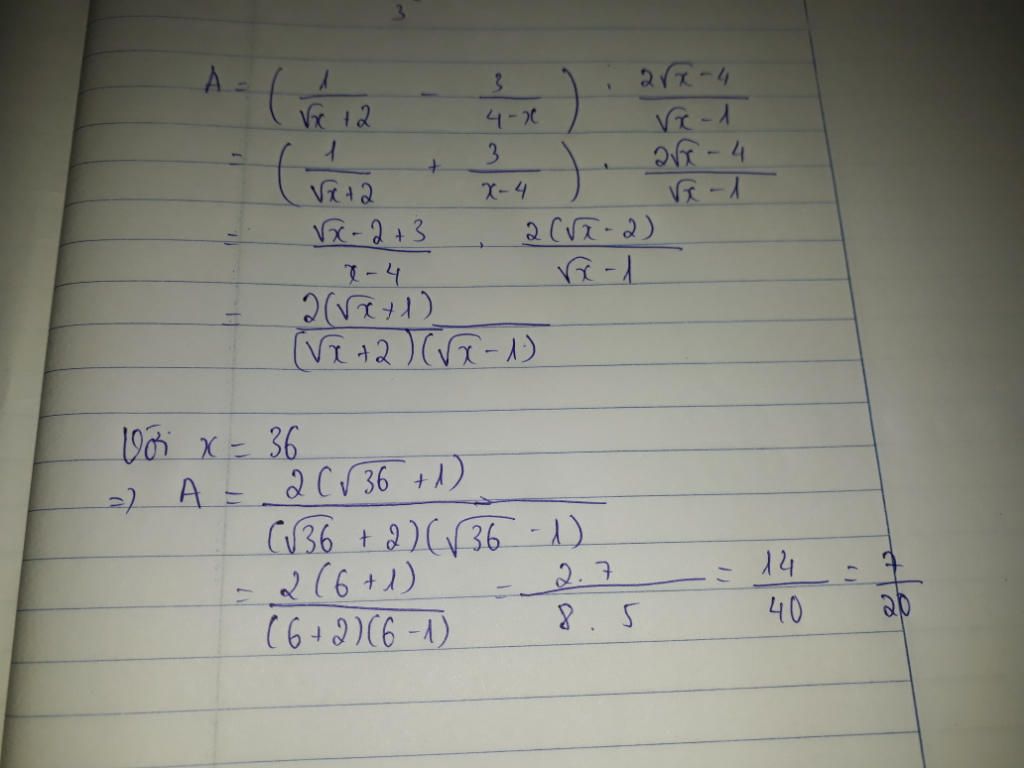 3
A = ( 1/(√x + 2) - 3/(4 - x) ) . (2√x - 4)/(√x - 1)
= ( 1/(√x + 2) + 3/(x - 4) ) . (2√x - 4)/(√x - 1)
= (√x - 2 + 3)/(x - 4) . 2(√x - 2)/(√x - 1)
= 2(√x + 1)/((√x + 2)(√x - 1))
Với x = 36
=> A = 2(√36 + 1)/((√36 + 2)(√36 - 1))
= 2(6 + 1)/((6 + 2)(6 - 1)) = 2.7/(8 . 5) = 14/40 = 7/20